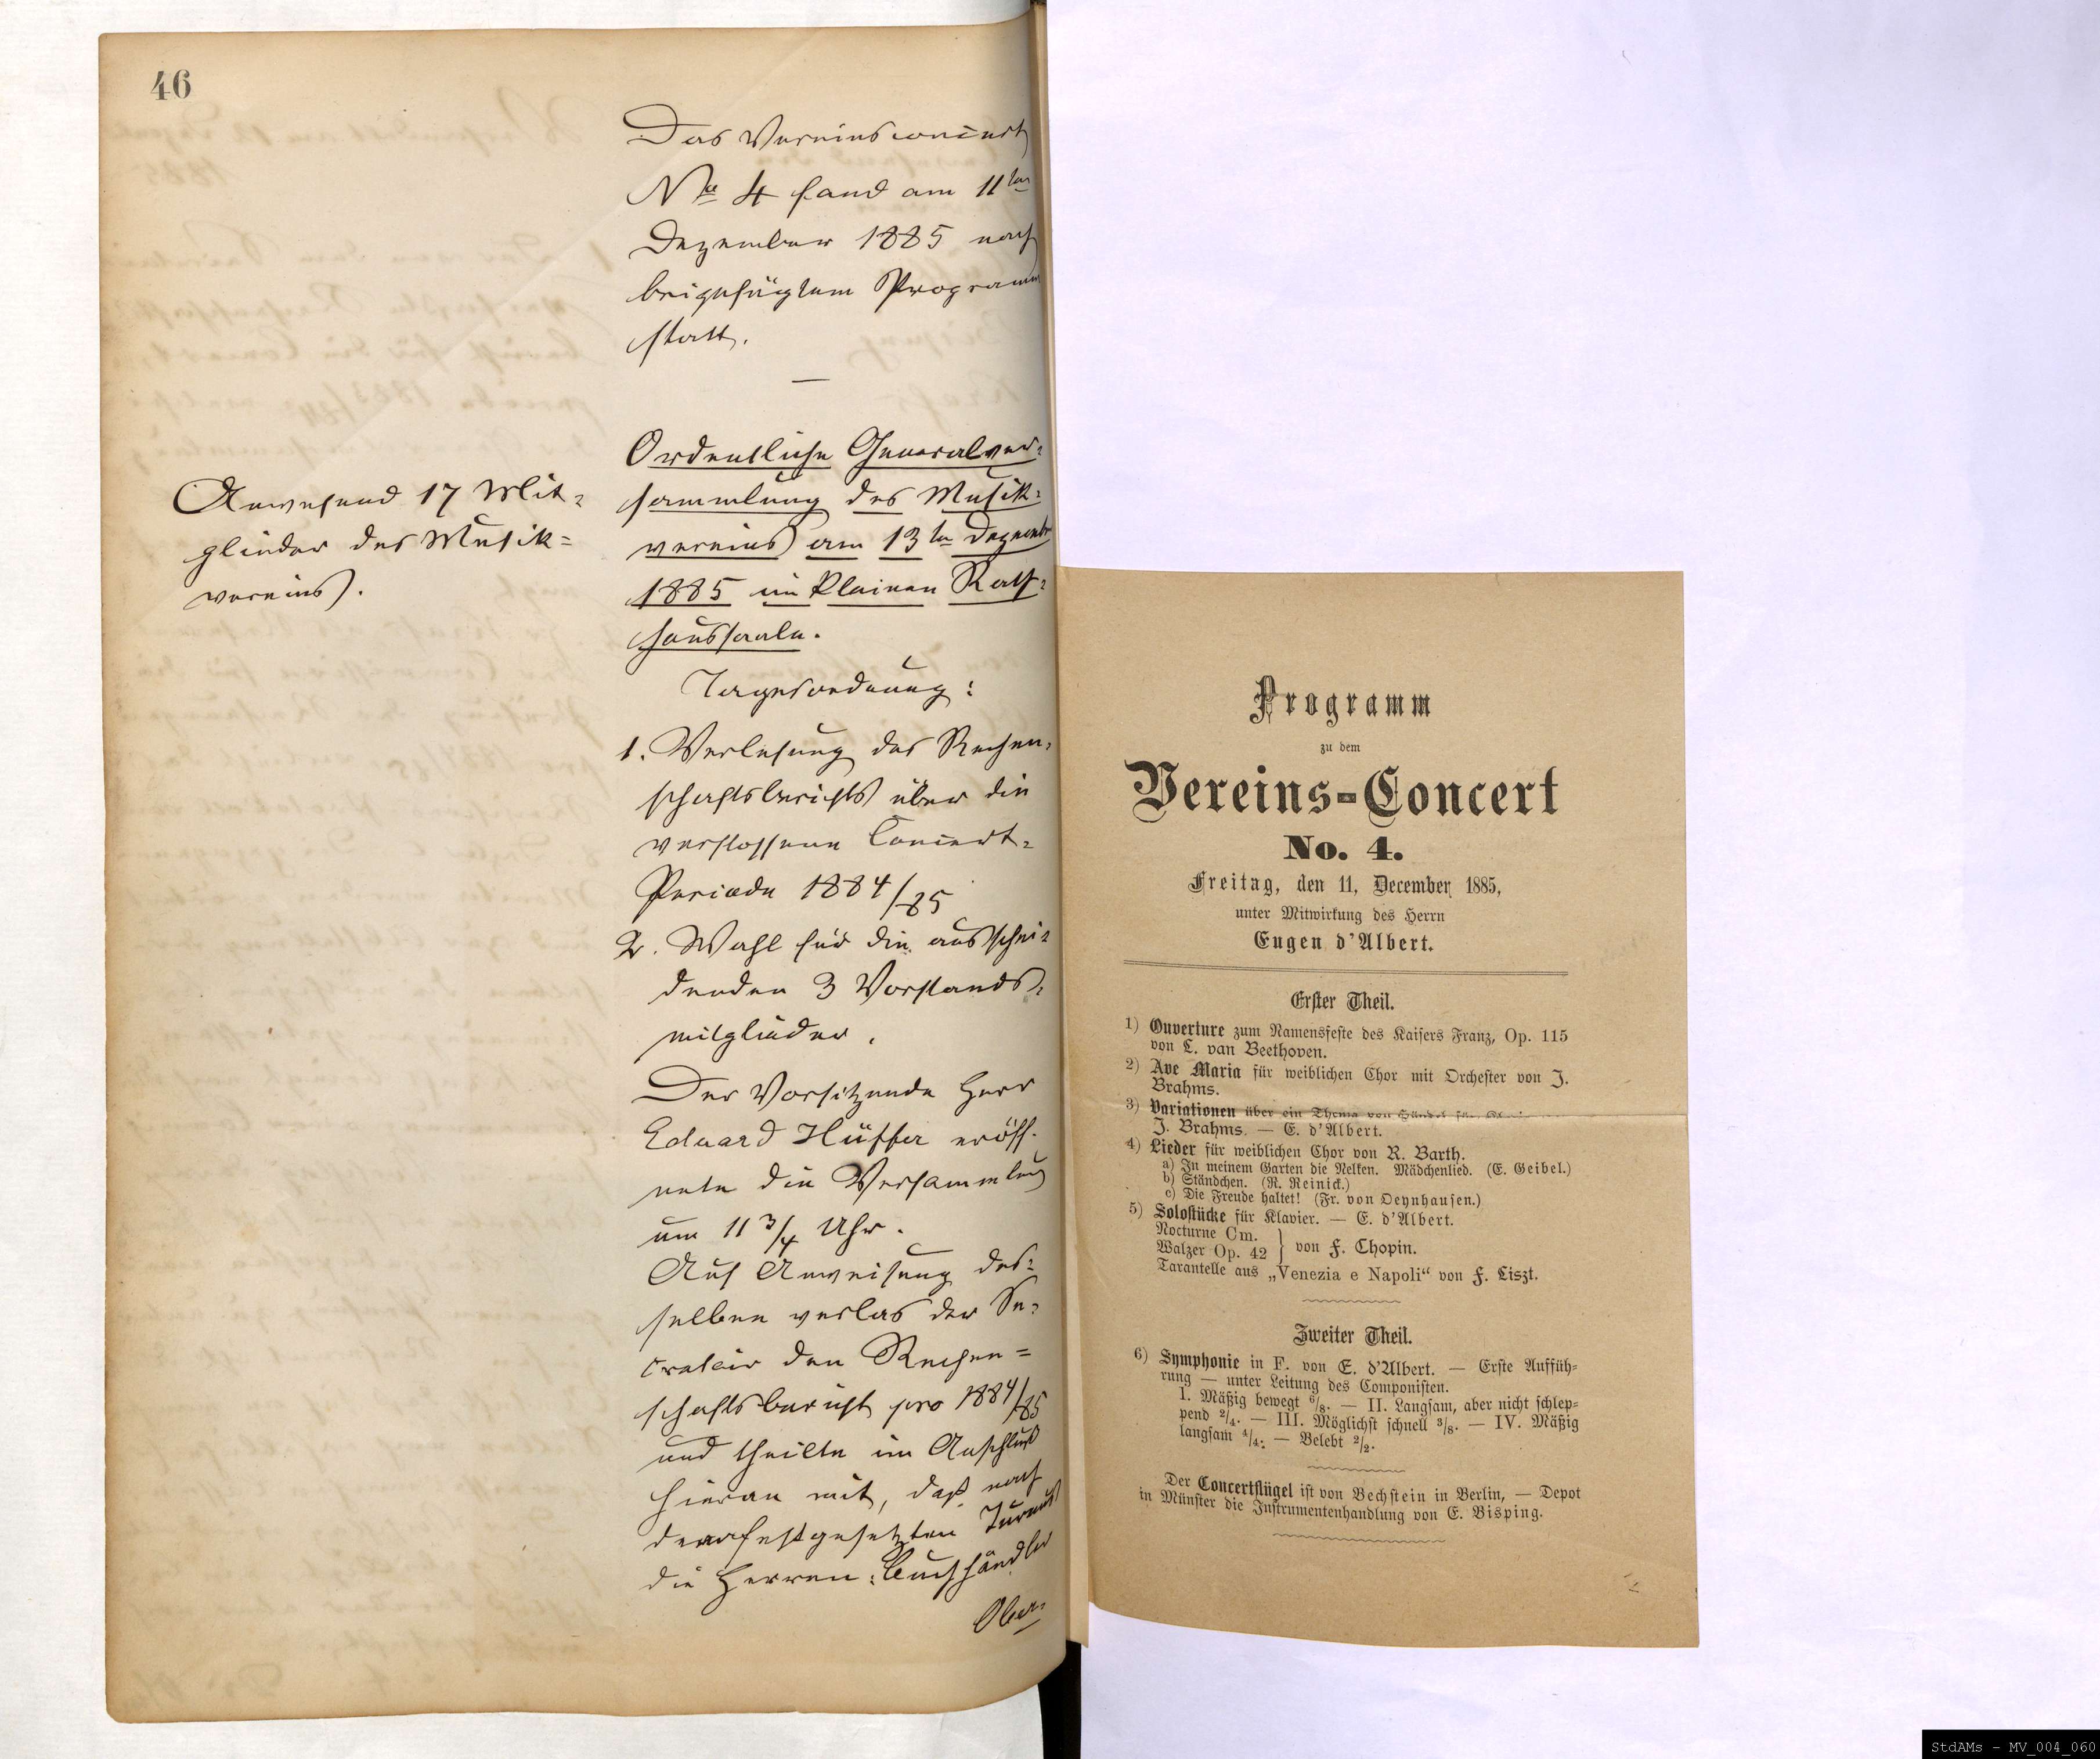 46
Das Vereinsconcert
No 4 fand am 11ten
Dezember 1885 nach
beigefügtem Programm
statt.
—
Anwesend 17 Mit-
glieder des Musik-
vereins.
Ordentliche Generalver-
sammlung des Musik-
vereins am 13ten Dezember
1885 im kleinen Rath-
haussaale.
Tagesordnung:
1. Verlesung des Rechen-
schaftsberichts über die
verflossene Concert-
Periode 1884/85
2. Wahl für die ausschei-
denden 3 Vorstands-
mitglieder.
Der Vorsitzende Herr
Eduard Hüffer eröff-
nete die Versammlung
um 11 3/4 Uhr.
Auf Anweisung des-
selben verlas der Se-
cretair den Rechen-
schaftsbericht pro 1884/85
und theilte im Anschluß
hieran mit, daß nach
dem festgesetzten Turnus
die Herren: Buchhändler
Ober-
Programm
zu dem
Vereins-Concert
No. 4.
Freitag, den 11. December 1885,
unter Mitwirkung des Herrn
Eugen d'Albert.
Erster Theil.
1) Ouverture zum Namensfeste des Kaisers Franz, Op. 115
von L. van Beethoven.
2) Ave Maria für weiblichen Chor mit Orchester von J.
Brahms.
3) Variationen über ein Thema von Händel für
J. Brahms. — E. d'Albert.
4) Lieder für weiblichen Chor von R. Barth.
a) In meinem Garten die Nelken. Mädchenlied. (E. Geibel.)
b) Ständchen. (R. Reinick.)
c) Die Freude haltet! (Fr. von Oeynhausen.)
5) Solostücke für Klavier. — E. d'Albert.
Nocturne Cm.
Walzer Op. 42 } von F. Chopin.
Tarantelle aus „Venezia e Napoli“ von F. Liszt.
Zweiter Theil.
6) Symphonie in F. von E. d'Albert. — Erste Auffüh-
rung — unter Leitung des Componisten.
I. Mäßig bewegt 6/8. — II. Langsam, aber nicht schlep-
pend 2/4. — III. Möglichst schnell 3/8. — IV. Mäßig
langsam 4/4. — Belebt 2/2.
Der Concertflügel ist von Bechstein in Berlin, — Depot
in Münster die Instrumentenhandlung von E. Bisping.
StdAMs - MV_004_060